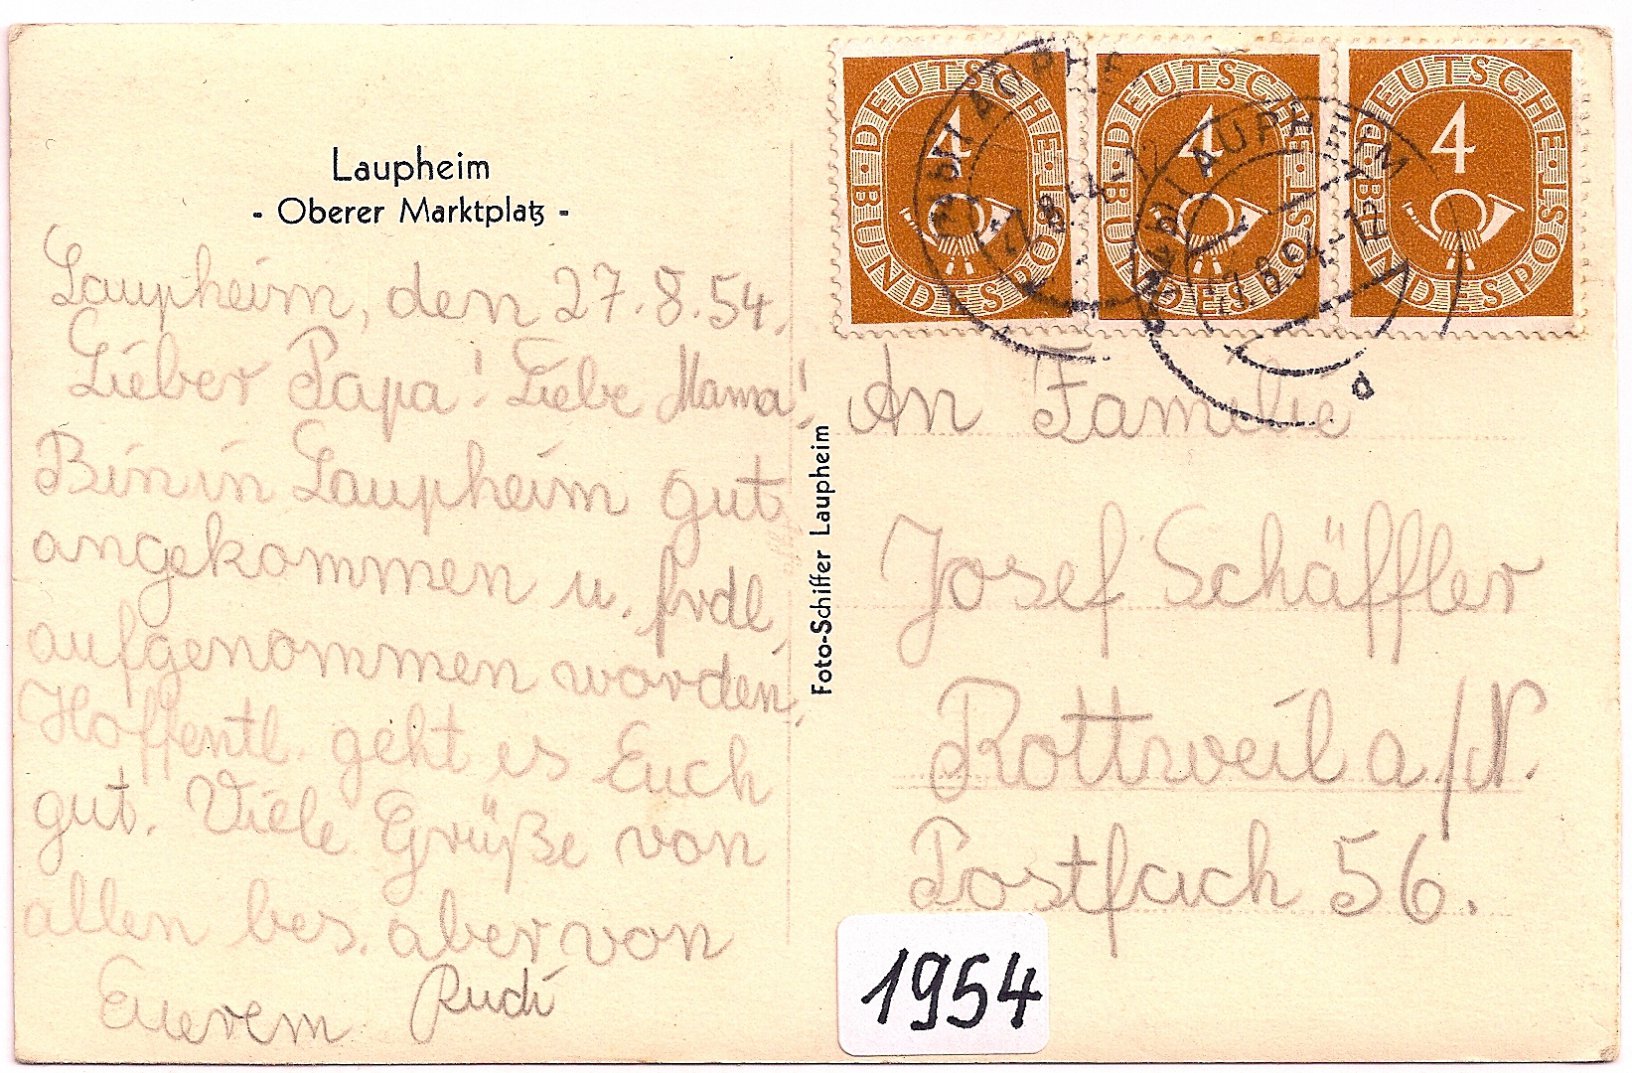 Laupheim
- Oberer Marktplatz -
Laupheim, den 27.8.54.
Lieber Papa! Liebe Mama!
Bin in Laupheim gut
angekommen u. frdl.
aufgenommen worden.
Hoffentl. geht es Euch
gut. Viele Grüße von
allen bes. aber von
Eurem Rudi
Foto-Schiffer Laupheim
DEUTSCHE BUNDESPOST
4
DEUTSCHE BUNDESPOST
4
DEUTSCHE BUNDESPOST
4
LAUPHEIM
27.8.54
LAUPHEIM
27.8.54-12
d
An Familie
Josef Schäffler
Rottweil a/N.
Postfach 56.
1954